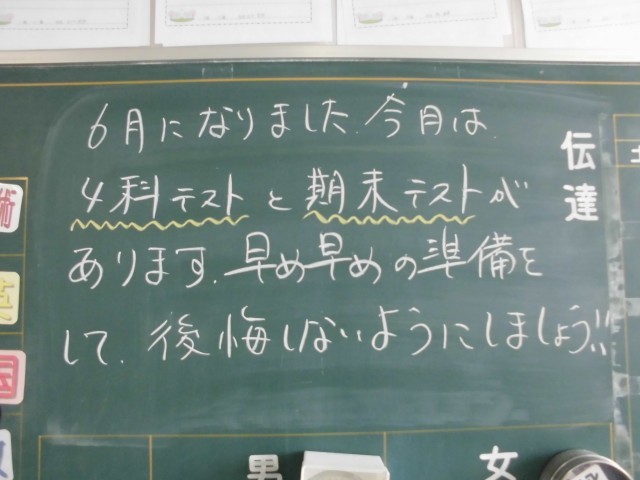 6月になりました.今月は.
4科テストと期末テストが
あります.早め早めの準備を
して.後悔しないようにしましょう!!
伝達
術
英
国
男
女